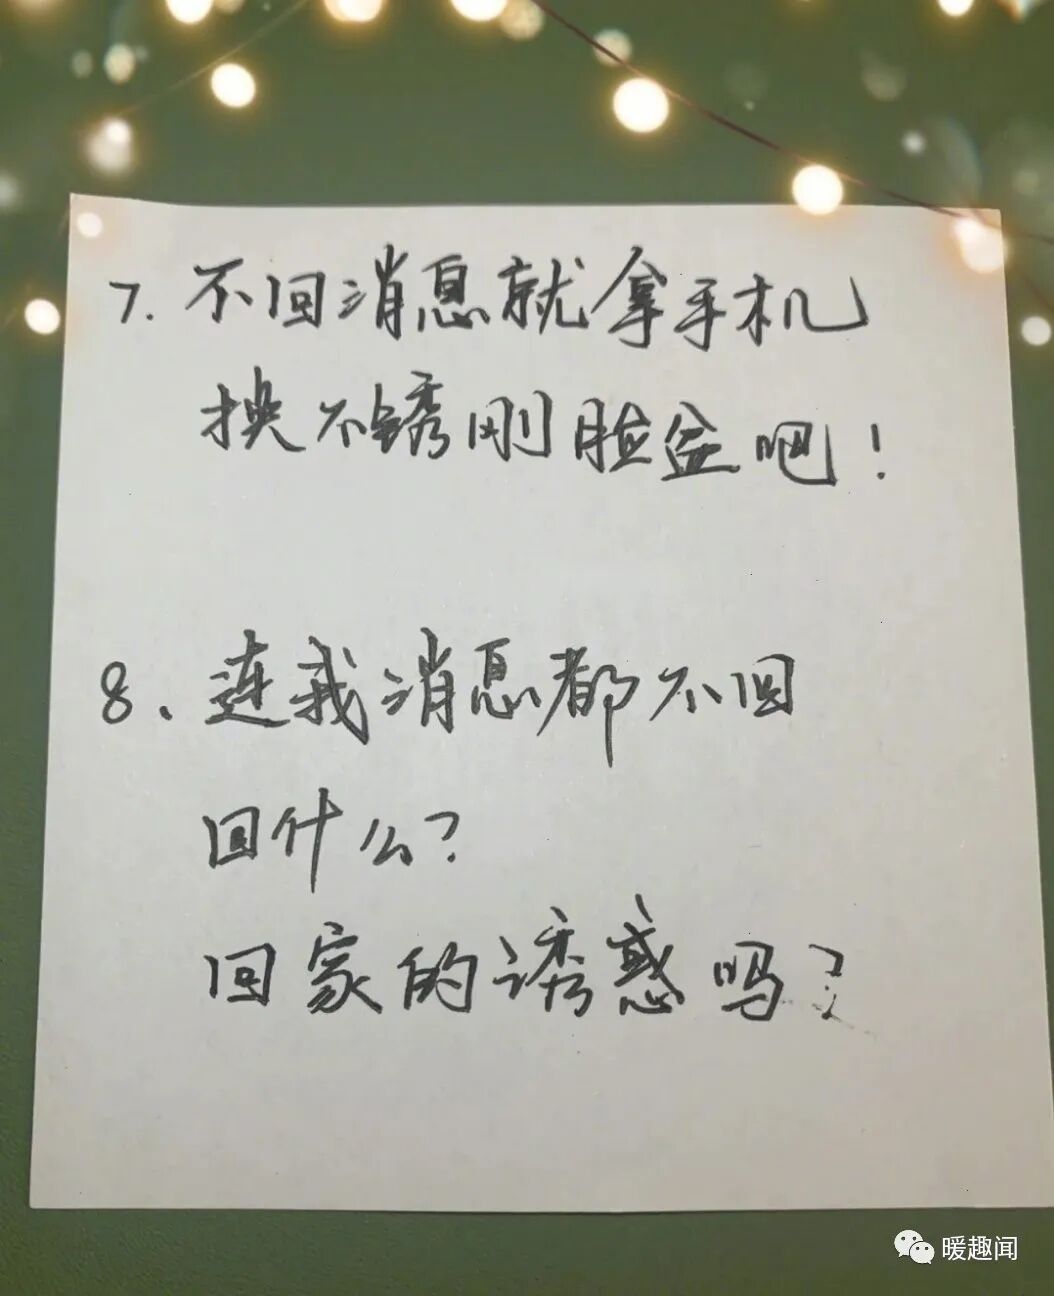 7. 不回消息就拿手机
换不锈刚脸盆吧！
8、连我消息都不回
回什么？
回家的诱惑吗？
暖趣闻